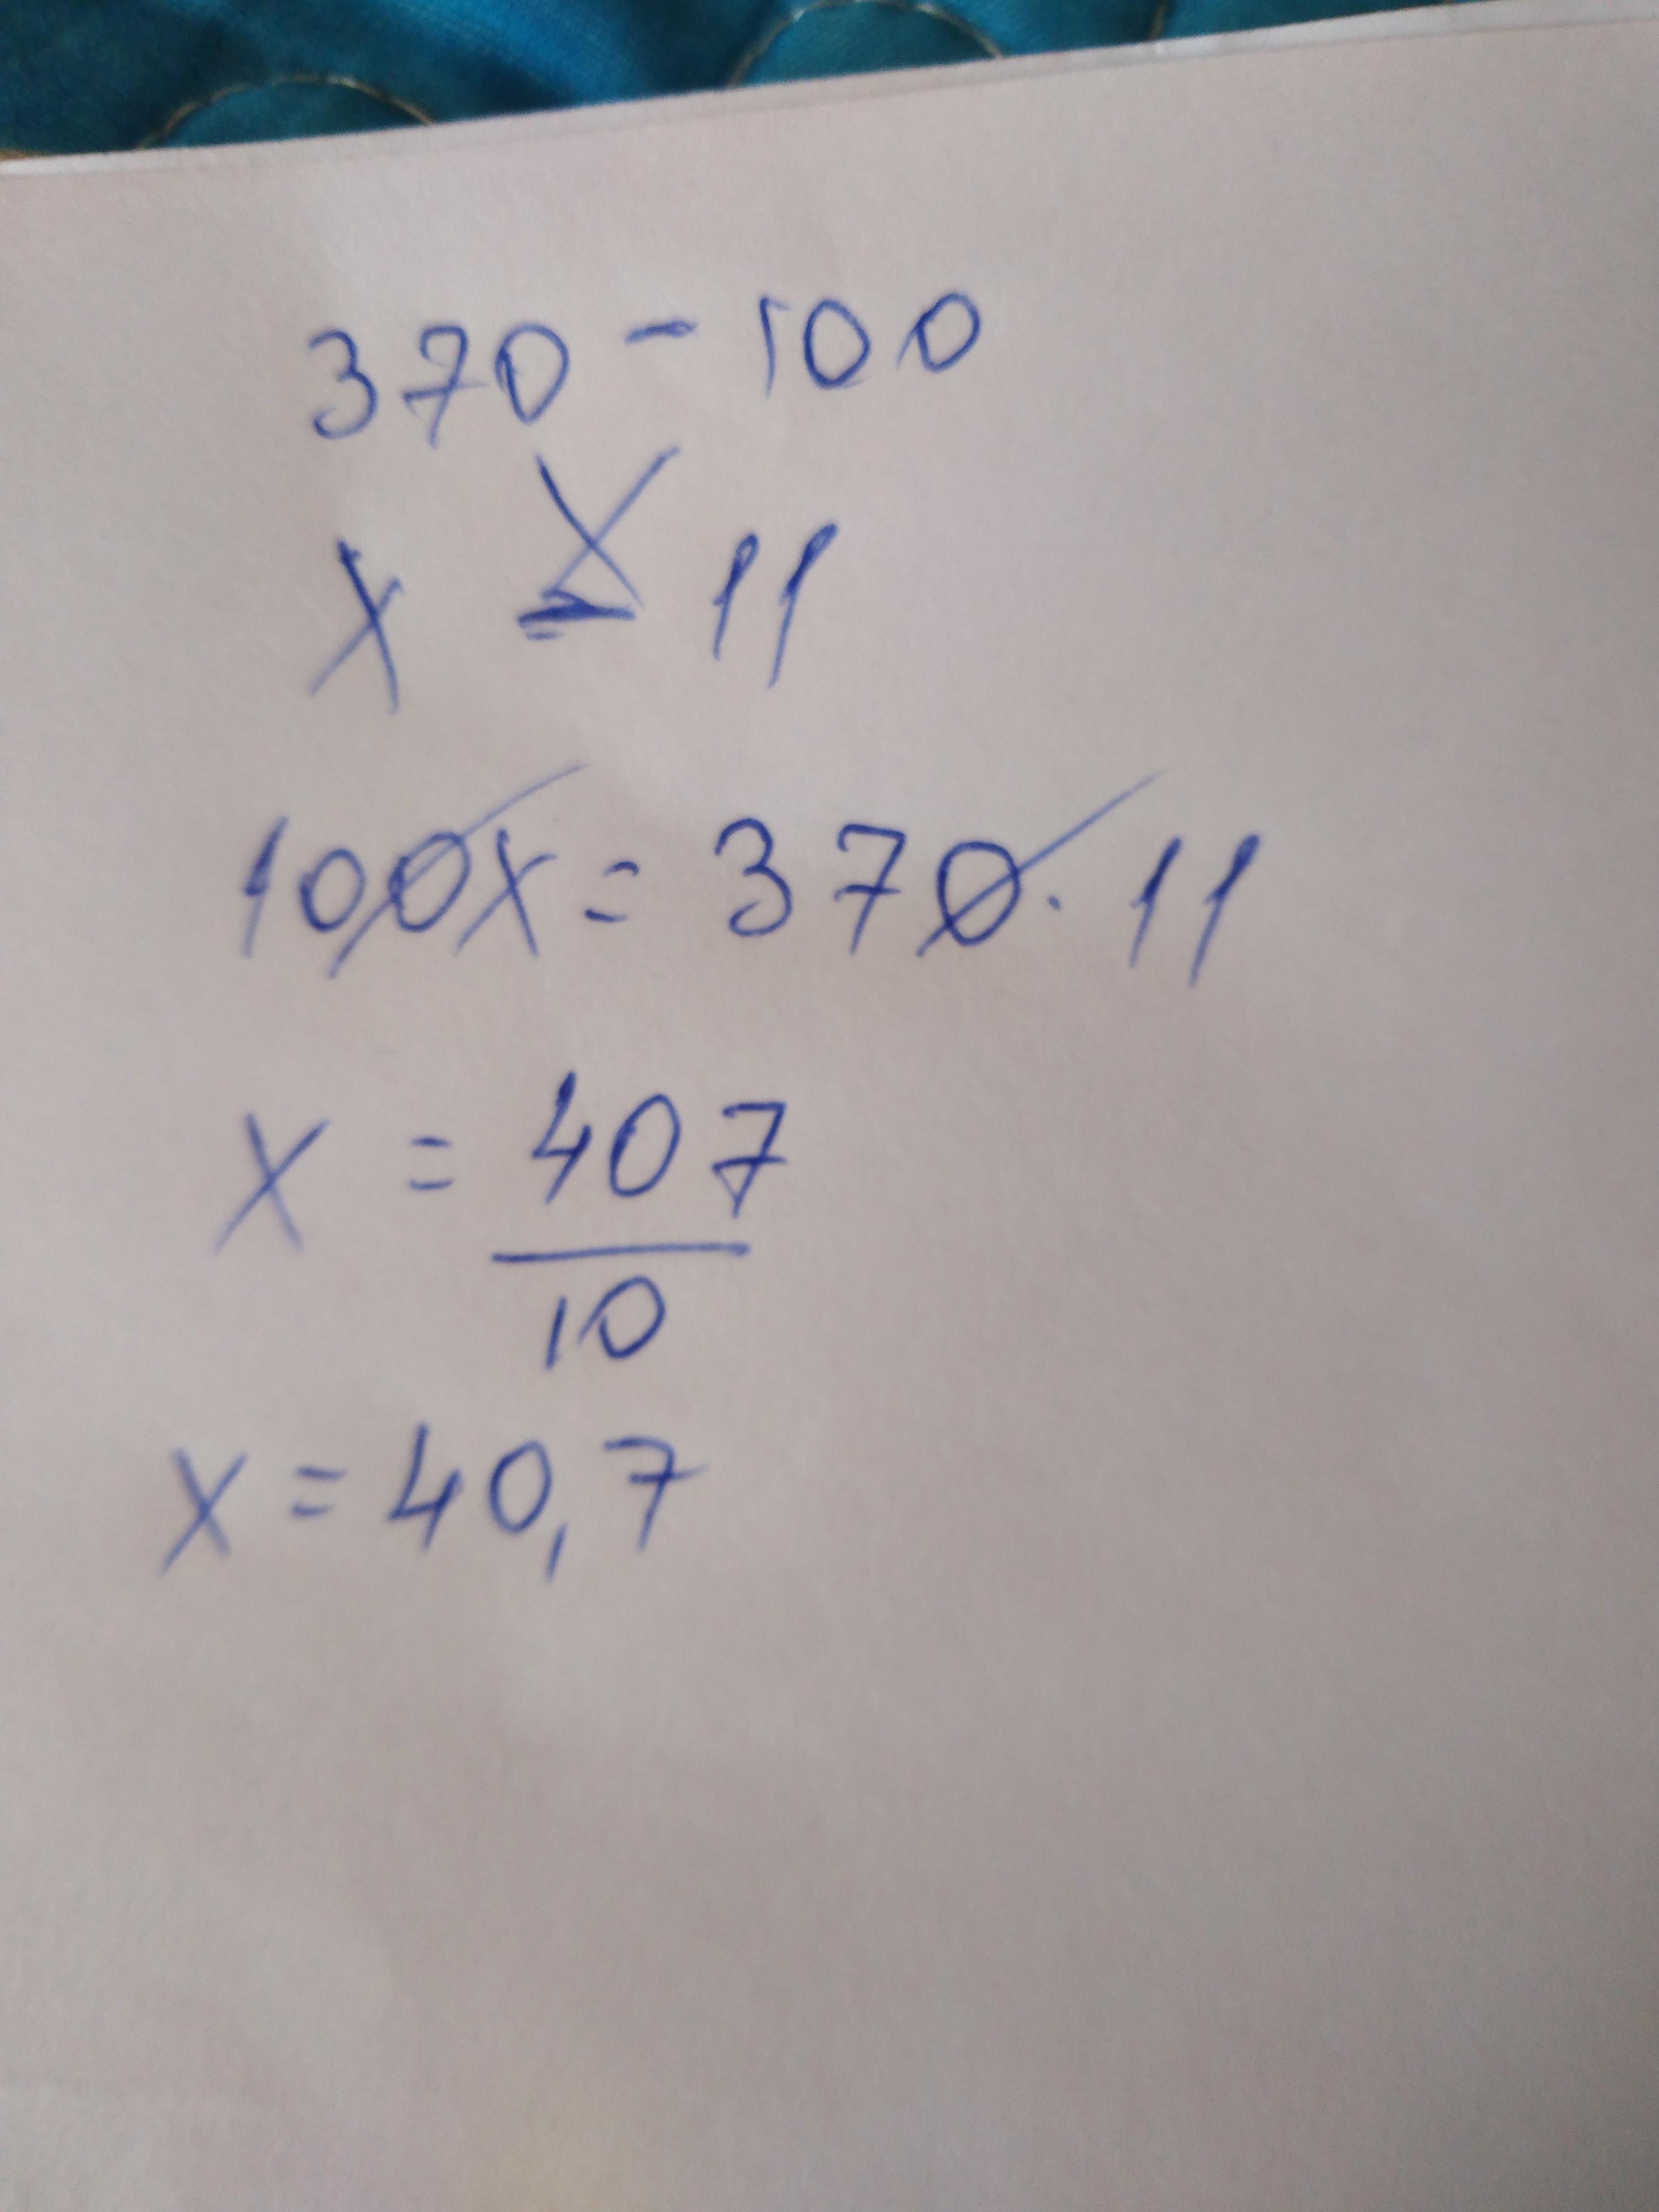 370 - 100
x - 11
100x = 370 · 11
x = 407
10
x = 40,7